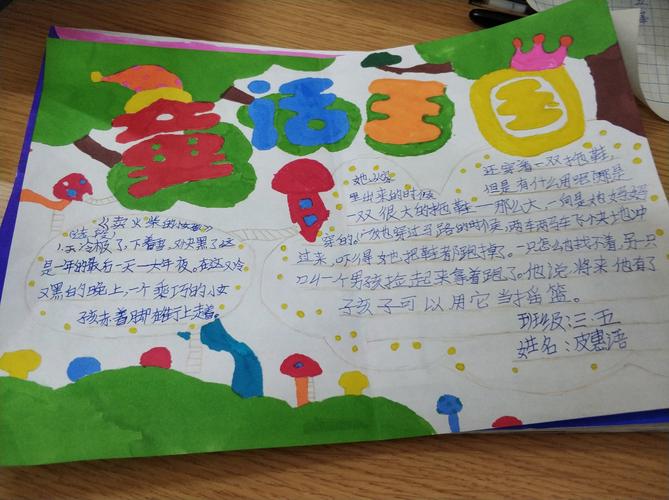 童话王国
《卖火柴的小女孩》
(选段)
天冷极了,下着雪,又快黑了。这
是一年的最后一天——大年夜。在这又冷
又黑的晚上,一个乖巧的小女
孩赤着脚在街上走着。
她从家
里出来的时候
还穿着一双拖鞋,
但是有什么用呢?那是
一双很大的拖鞋——那么大,一向是她妈妈
穿的。她穿过马路的时候,两车两马车飞冲过也冲
过来,吓得她把鞋都跑掉了。一只怎么也找不着,另一只
叫一个男孩捡起来拿着跑了。他说,将来他有了
孩子可以用它当摇篮。
班级:三.五
姓名:皮惠语